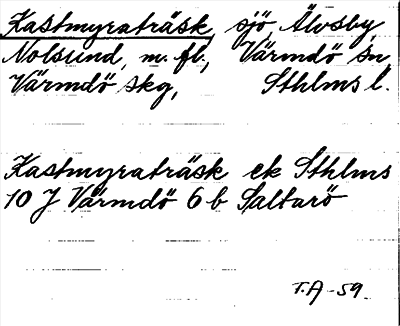 Kastmyraträsk, sjö, Älvsby,
Nolsund, m. fl., Värmdö sn,
Värmdö skg, Sthlms l.
Kastmyraträsk ek Sthlms
10 J Värmdö 6 b Saltarö
T.A -59